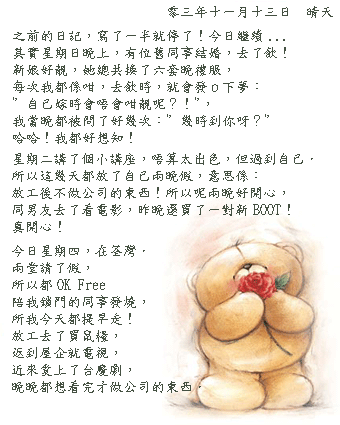 零三年十一月十三日　晴天
之前的日記，寫了一半就停了！今日繼續...
其實星期日晚上，有位舊同事結婚，去了飲！
新娘好靚，她總共換了六套晚禮服，
每次我都係咁，去飲時，就會發o下夢：
”自己嫁時會唔會咁靚呢？！”，
我當晚都被問了好幾次：”幾時到你呀？”
哈哈！我都好想知！
星期二講了個小講座，唔算太出色，但過到自己．
所以這幾天都放了自己兩晚假，意思係：
放工後不做公司的東西！所以呢兩晚好開心，
同男友去了看電影，昨晚還買了一對新BOOT！
真開心！
今日星期四，在荃灣．
兩堂請了假，
所以都OK Free
陪我鎖門的同事發燒，
所我今天都提早走！
放工去了買鼠標，
返到屋企就電視，
近來愛上了台慶劇，
晚晚都想看完才做公司的東西．